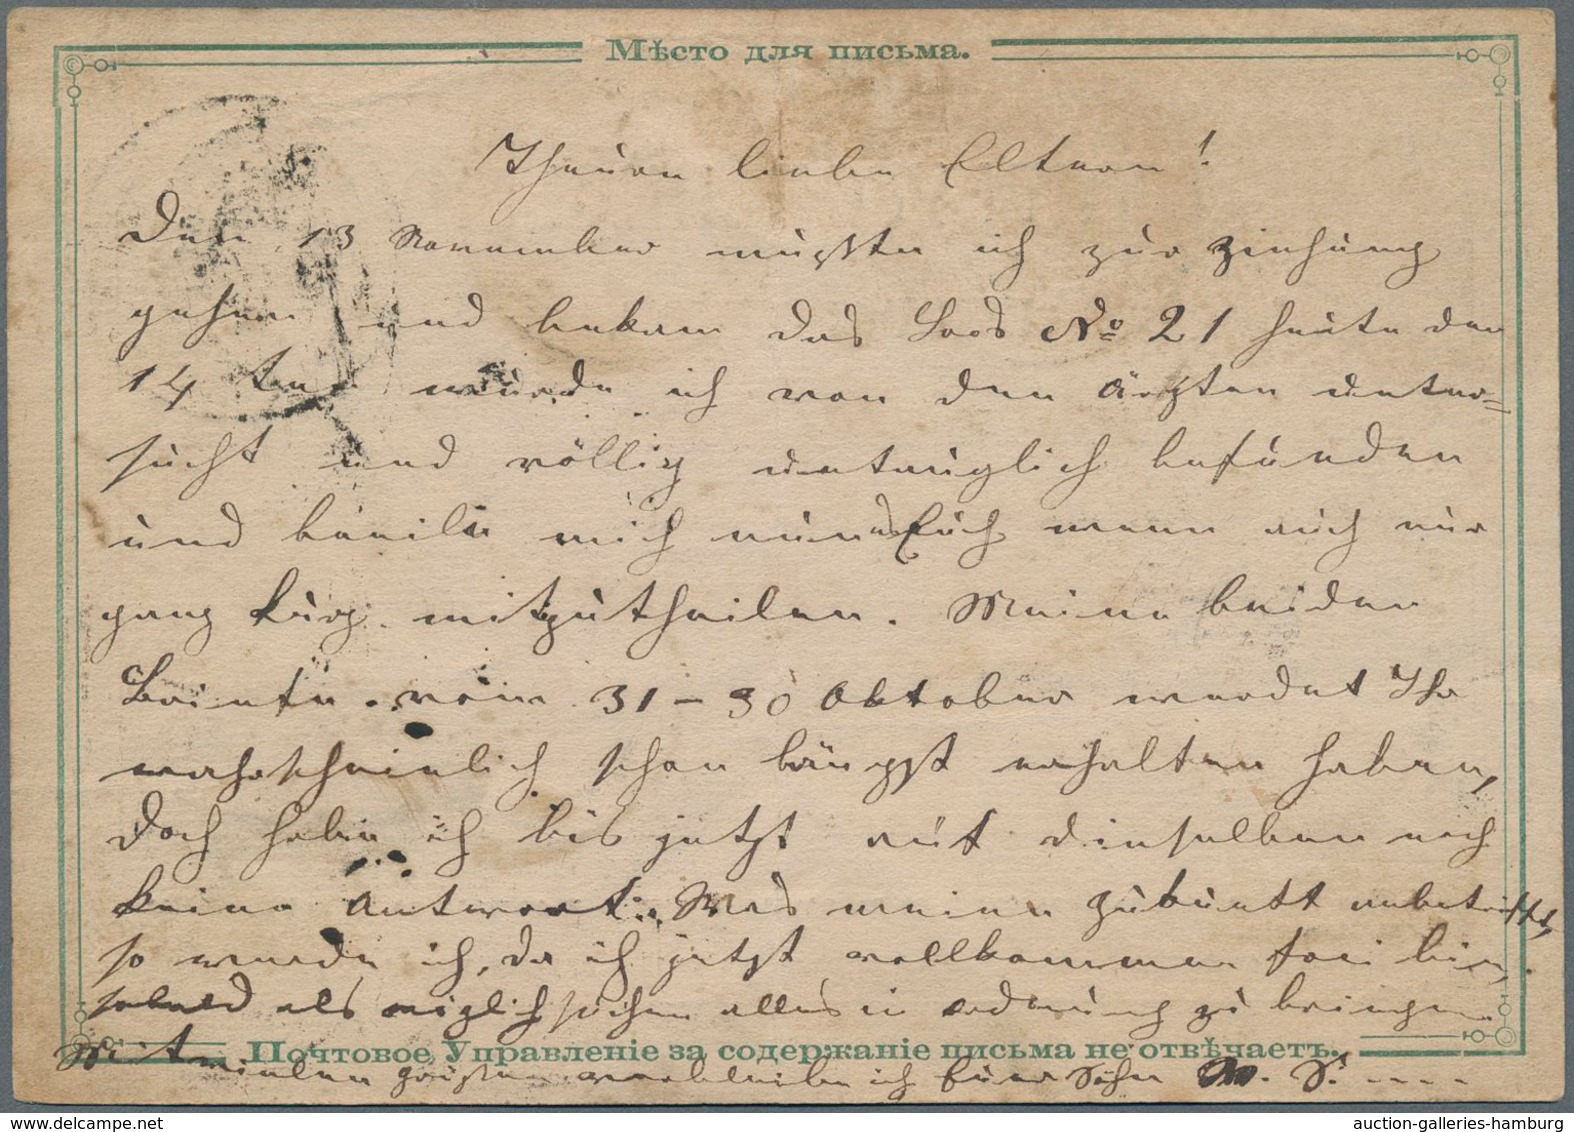 Мѣсто для письма.
Theure liebe Eltern!
Den 13 November mußte ich zur Ziehung
gehen und bekam das Loos No 21 heute den
14 ten wurde ich von den Ärzten unter=
sucht und völlig untauglich befunden
und beeile mich nun es Euch wenn auch nur
ganz kurz mitzutheilen. Meine beiden
Briefe vom 31 – 30 Oktober werdet Ihr
wahrscheinlich schon längst erhalten haben,
doch habe ich bis jetzt auf dieselben noch
keine Antwort. Was meine Zukunft anbetrifft,
so werde ich, da ich jetzt vollkommen frei bin,
sobald als möglich suchen alles in Ordnung zu bringen.
Почтовое Управленіе за содержаніе письма не отвѣчаетъ.
Mit vielen Grüßen verbleibe ich Euer Sohn M. S. ----
auction-galleries-hamburg